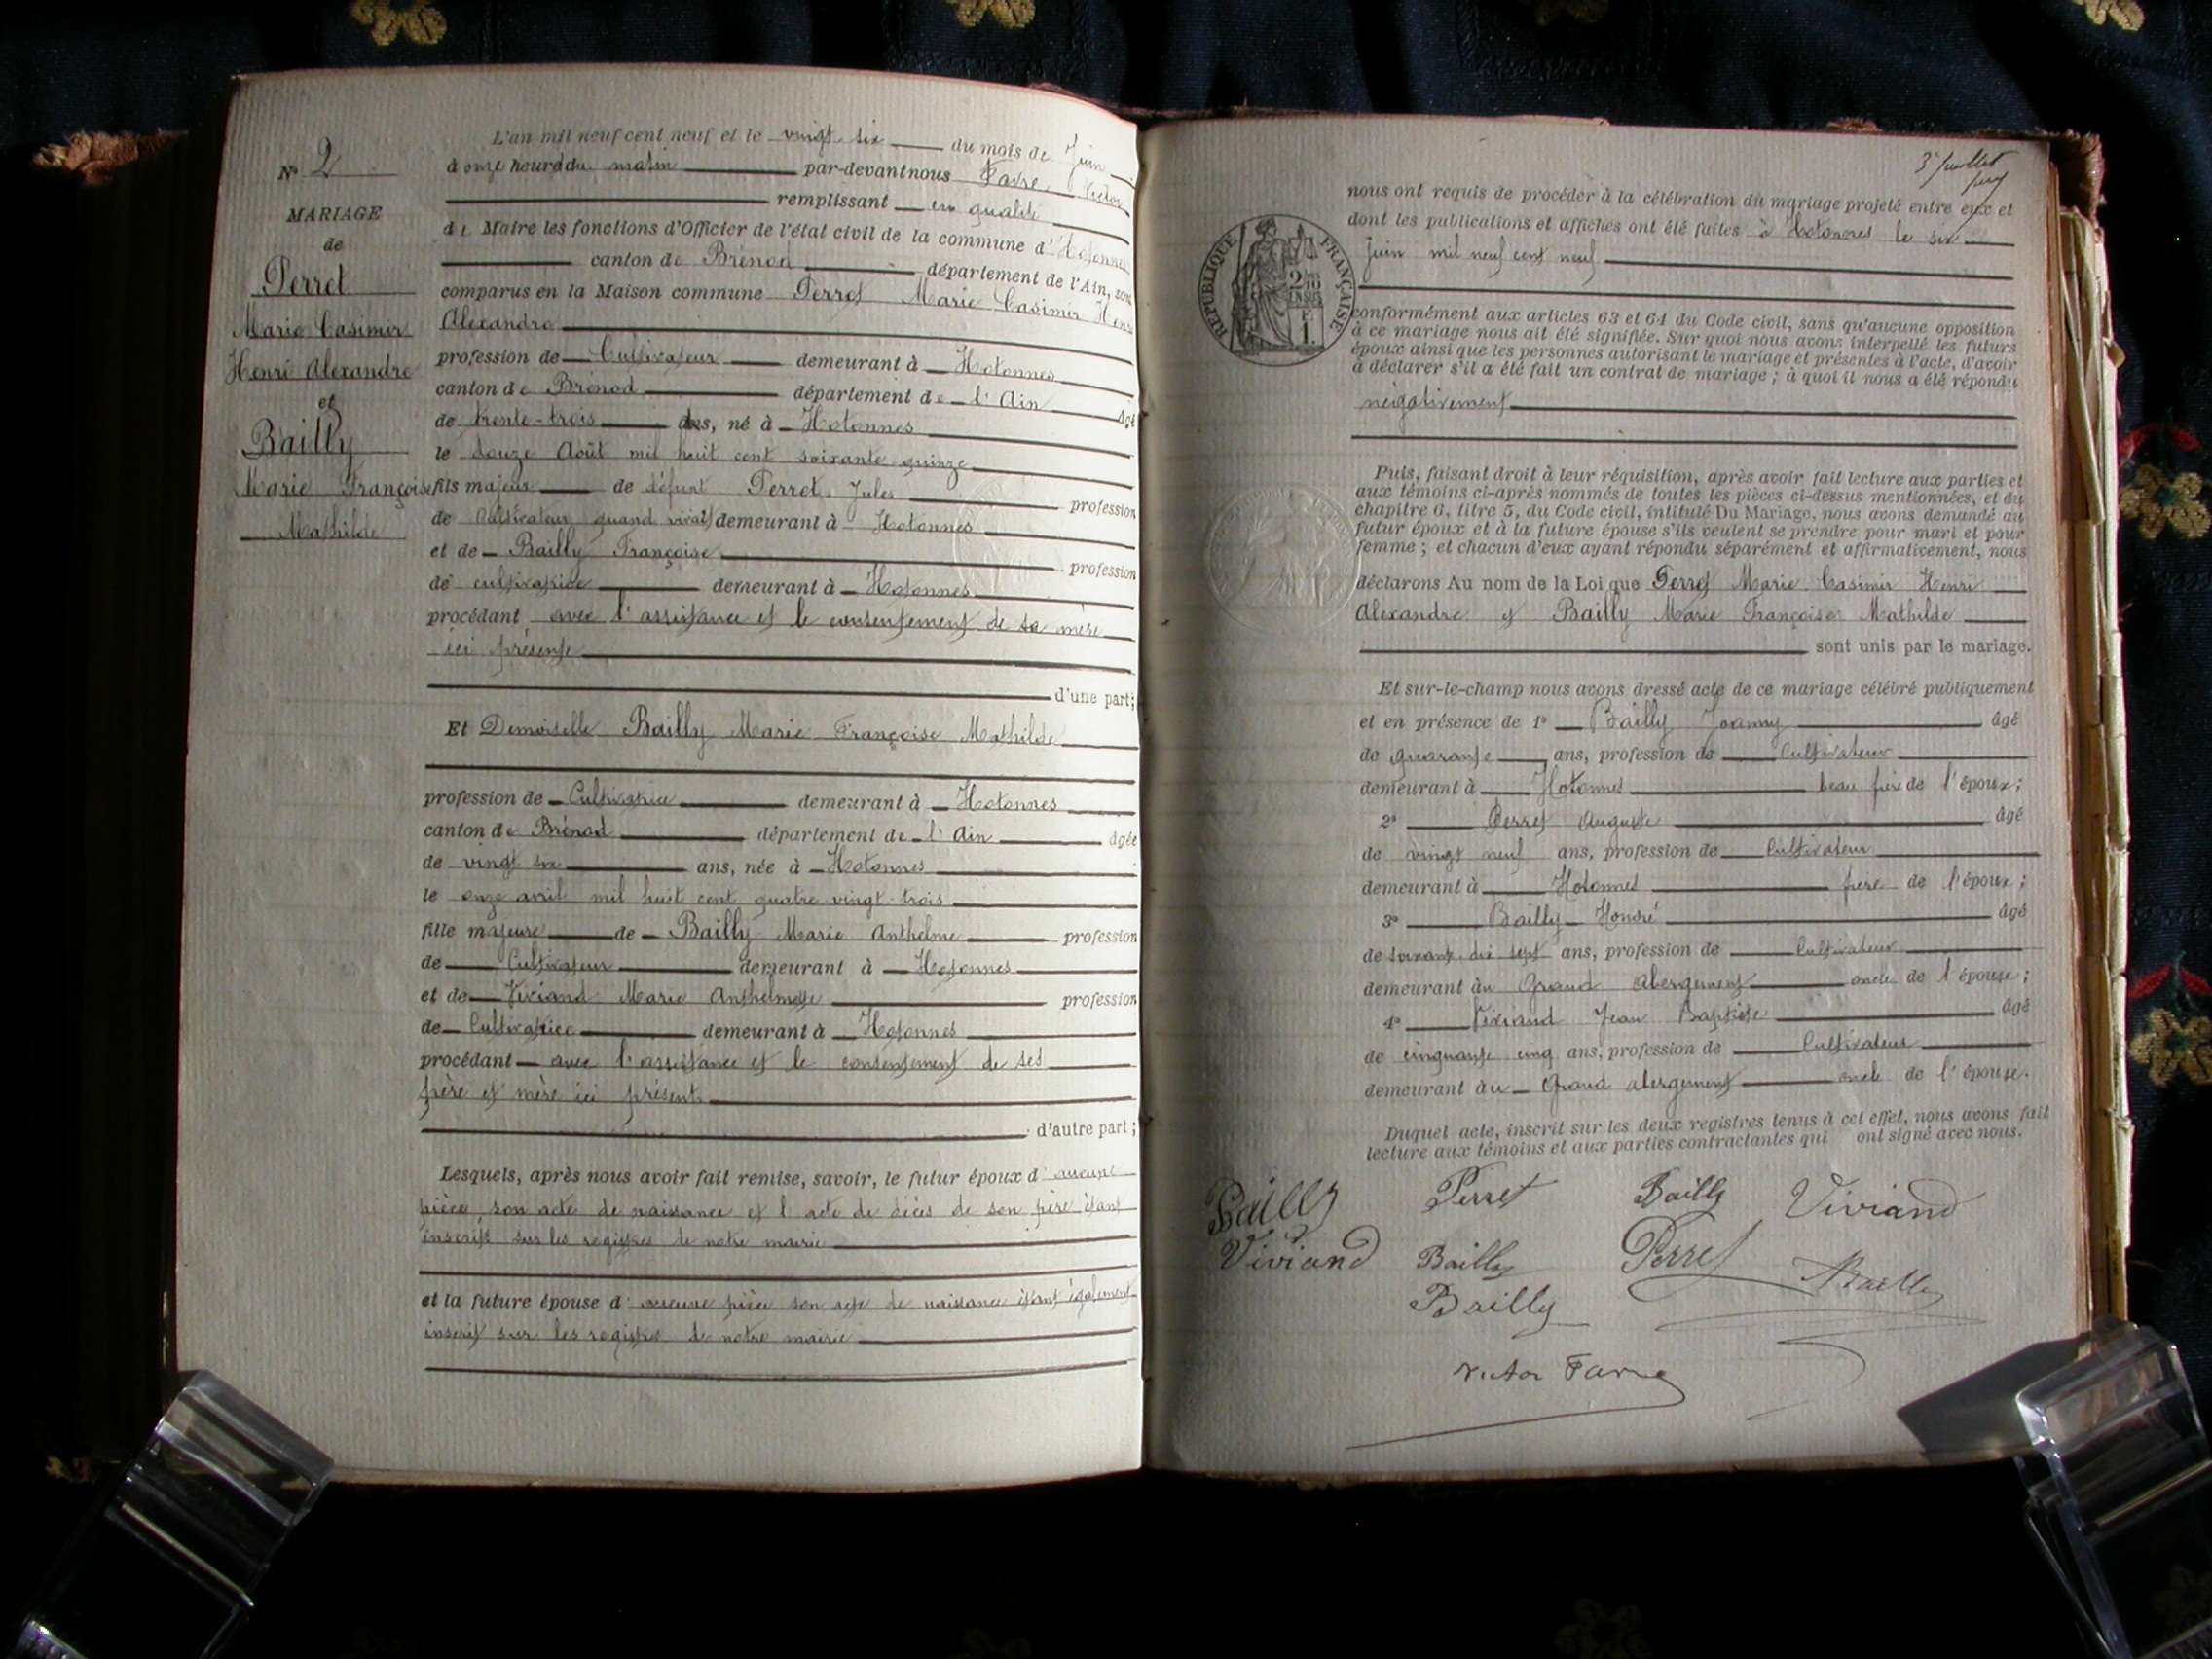 N° 2
MARIAGE
de
Perret
Marie Casimir
Henri Alexandre
et
Bailly
Marie Françoise
Mathilde
L'an mil neuf cent neuf et le vingt six du mois de Juin
à onze heures du matin par-devant nous Favre Victor
remplissant en qualité
de Maire les fonctions d'Officier de l'état civil de la commune d'Hotonnes
canton de Brénod département de l'Ain, sont
comparus en la Maison commune Perret Marie Casimir Henri
Alexandre
profession de Cultivateur demeurant à Hotonnes
canton de Brénod département de l'Ain âgé
de trente-trois ans, né à Hotonnes
le douze Août mil huit cent soixante quinze
fils majeur de défunt Perret Jules profession
de cultivateur quand vivait demeurant à Hotonnes
et de Bailly Françoise profession
de cultivatrice demeurant à Hotonnes
procédant avec l'assistance et le consentement de sa mère
ici présente
d'une part;
Et Demoiselle Bailly Marie Françoise Mathilde
profession de Cultivatrice demeurant à Hotonnes
canton de Brénod département de l'Ain âgée
de vingt six ans, née à Hotonnes
le onze avril mil huit cent quatre vingt-trois
fille majeure de Bailly Marie Anthelme profession
de Cultivateur demeurant à Hotonnes
et de Viviand Marie Anthelmette profession
de Cultivatrice demeurant à Hotonnes
procédant avec l'assistance et le consentement de ses
père et mère ici présents
d'autre part;
Lesquels, après nous avoir fait remise, savoir, le futur époux d'aucune
pièce son acte de naissance et l'acte de décès de son père étant
inscrits sur les registres de notre mairie
et la future épouse d'aucune pièce son acte de naissance étant également
inscrit sur les registres de notre mairie
3e juillet
nous ont requis de procéder à la célébration du mariage projeté entre eux et
dont les publications et affiches ont été faites à Hotonnes le six
Juin mil neuf cent neuf
RÉPUBLIQUE FRANÇAISE
conformément aux articles 63 et 64 du Code civil, sans qu'aucune opposition
à ce mariage nous ait été signifiée. Sur quoi nous avons interpellé les futurs
époux ainsi que les personnes autorisant le mariage et présentes à l'acte, d'avoir
à déclarer s'il a été fait un contrat de mariage; à quoi il nous a été répondu
négativement
Puis, faisant droit à leur réquisition, après avoir fait lecture aux parties et
aux témoins ci-après nommés de toutes les pièces ci-dessus mentionnées, et du
chapitre 6, titre 5, du Code civil, intitulé Du Mariage, nous avons demandé au
futur époux et à la future épouse s'ils veulent se prendre pour mari et pour
femme; et chacun d'eux ayant répondu séparément et affirmativement, nous
déclarons Au nom de la Loi que Perret Marie Casimir Henri
Alexandre et Bailly Marie Françoise Mathilde
sont unis par le mariage.
Et sur-le-champ nous avons dressé acte de ce mariage célébré publiquement
et en présence de 1° Bailly Joanny âgé
de quarante ans, profession de Cultivateur
demeurant à Hotonnes beau frère de l'époux;
2° Perret Auguste âgé
de vingt neuf ans, profession de Cultivateur
demeurant à Hotonnes frère de l'époux;
3° Bailly Honoré âgé
de soixante dix sept ans, profession de Cultivateur
demeurant au Grand Abergement oncle de l'épouse;
4° Viviand Jean Baptiste âgé
de cinquante cinq ans, profession de Cultivateur
demeurant au Grand abergement oncle de l'épouse.
Duquel acte, inscrit sur les deux registres tenus à cet effet, nous avons fait
lecture aux témoins et aux parties contractantes qui ont signé avec nous.
Bailly Perret Bailly Viviand
Viviand Bailly Perret Bailly
Bailly
Victor Favre